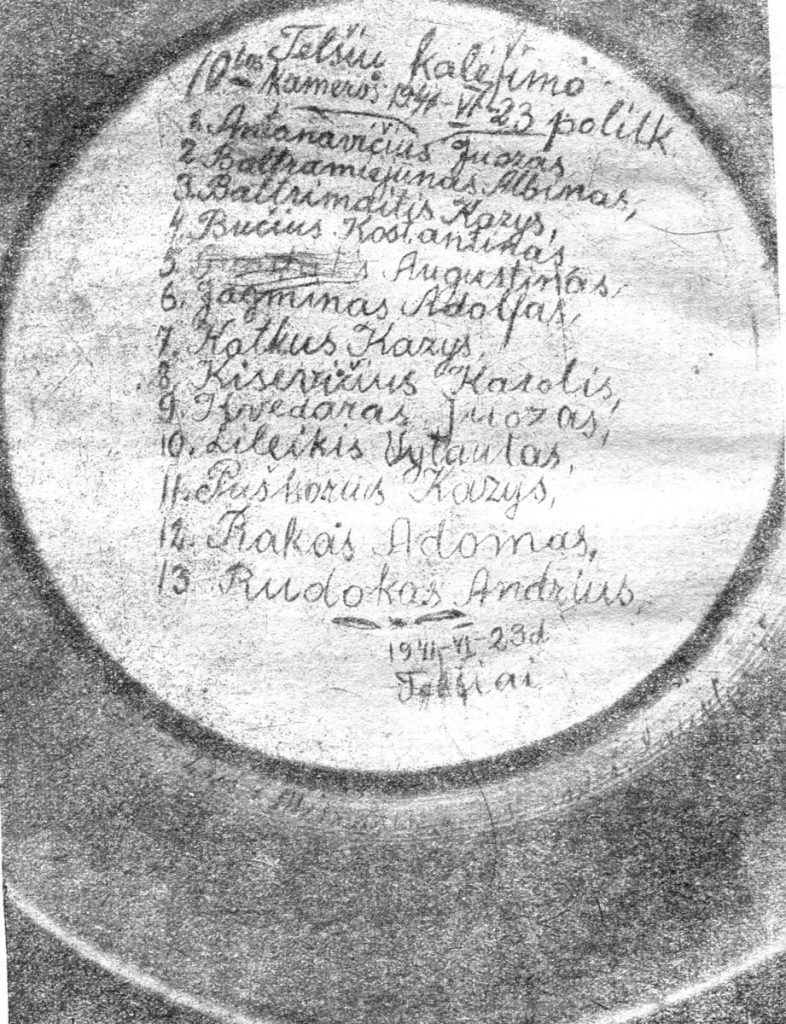 Telšių kalėjimo
10-tos kameros 1941-VI-23 politk.
1. Antanavičius Juozas,
2. Baltramiejunas Albinas,
3. Baltrimaitis Kazys,
4. Bučius Kostantinas,
5. Augustinas,
6. Jagminas Adolfas,
7. Katkus Kazys,
8. Kisevižius Karolis,
9. Juozas,
10. Lileikis Vytautas,
11. Kazys,
12. Rakas Adomas,
13 Rudokas Andrius,
1941-VI-23d
Telšiai